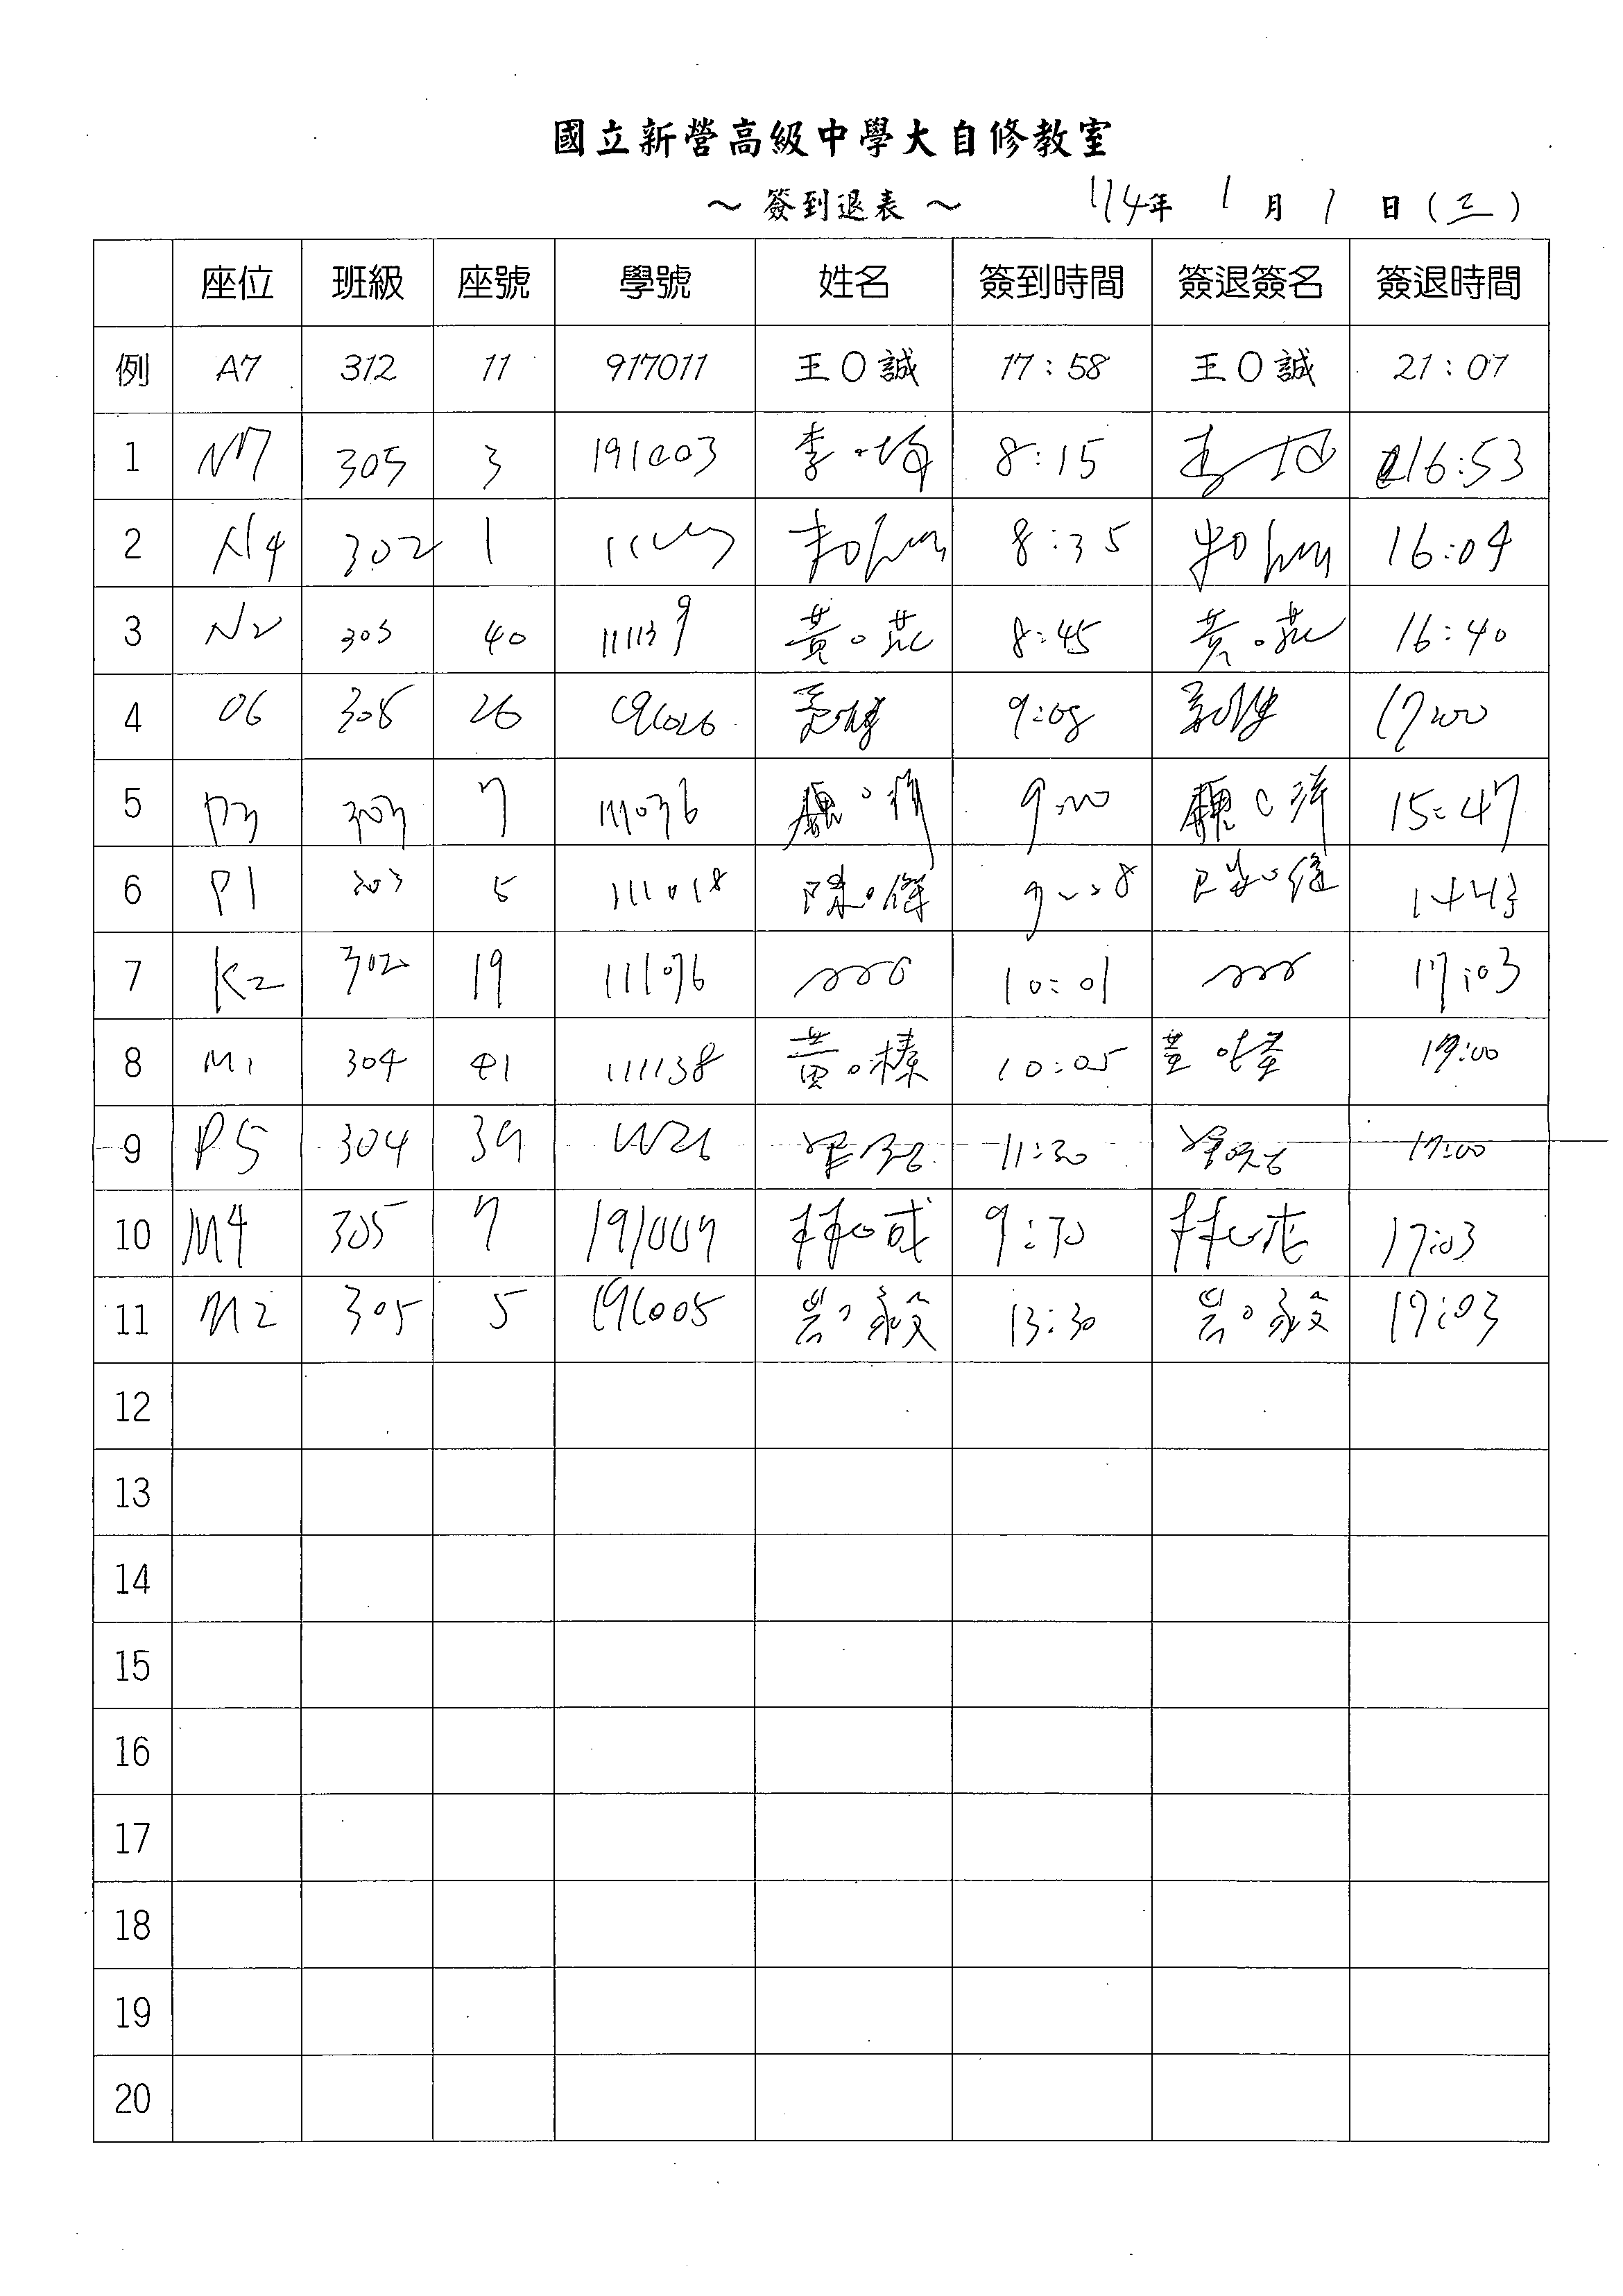 國立新營高級中學大自修教室
～ 簽到退表 ～ 114年 1 月 1 日 (三)
座位 班級 座號 學號 姓名 簽到時間 簽退簽名 簽退時間
例 A7 312 11 917011 王O誠 17:58 王O誠 21:07
1 N7 305 3 191003 李 8:15 李 16:53
2 N4 302 1 8:35 16:04
3 N2 303 40 111139 黃 8:45 黃 16:40
4 06 305 26 191026 9:08 17:00
5 P3 303 7 111036 魏 9:00 魏 15:47
6 P1 303 5 111018 陳○傑
7 K2 302 19 111076 10:01 17:03
8 M1 304 41 111138 黃○榛 10:05 黃 17:00
9 P5 304 39 11:30 17:00
10 M4 305 7 191007 林○成 9:30 林 17:03
11 M2 305 5 191005 毅 13:30 毅 17:03
12
13
14
15
16
17
18
19
20